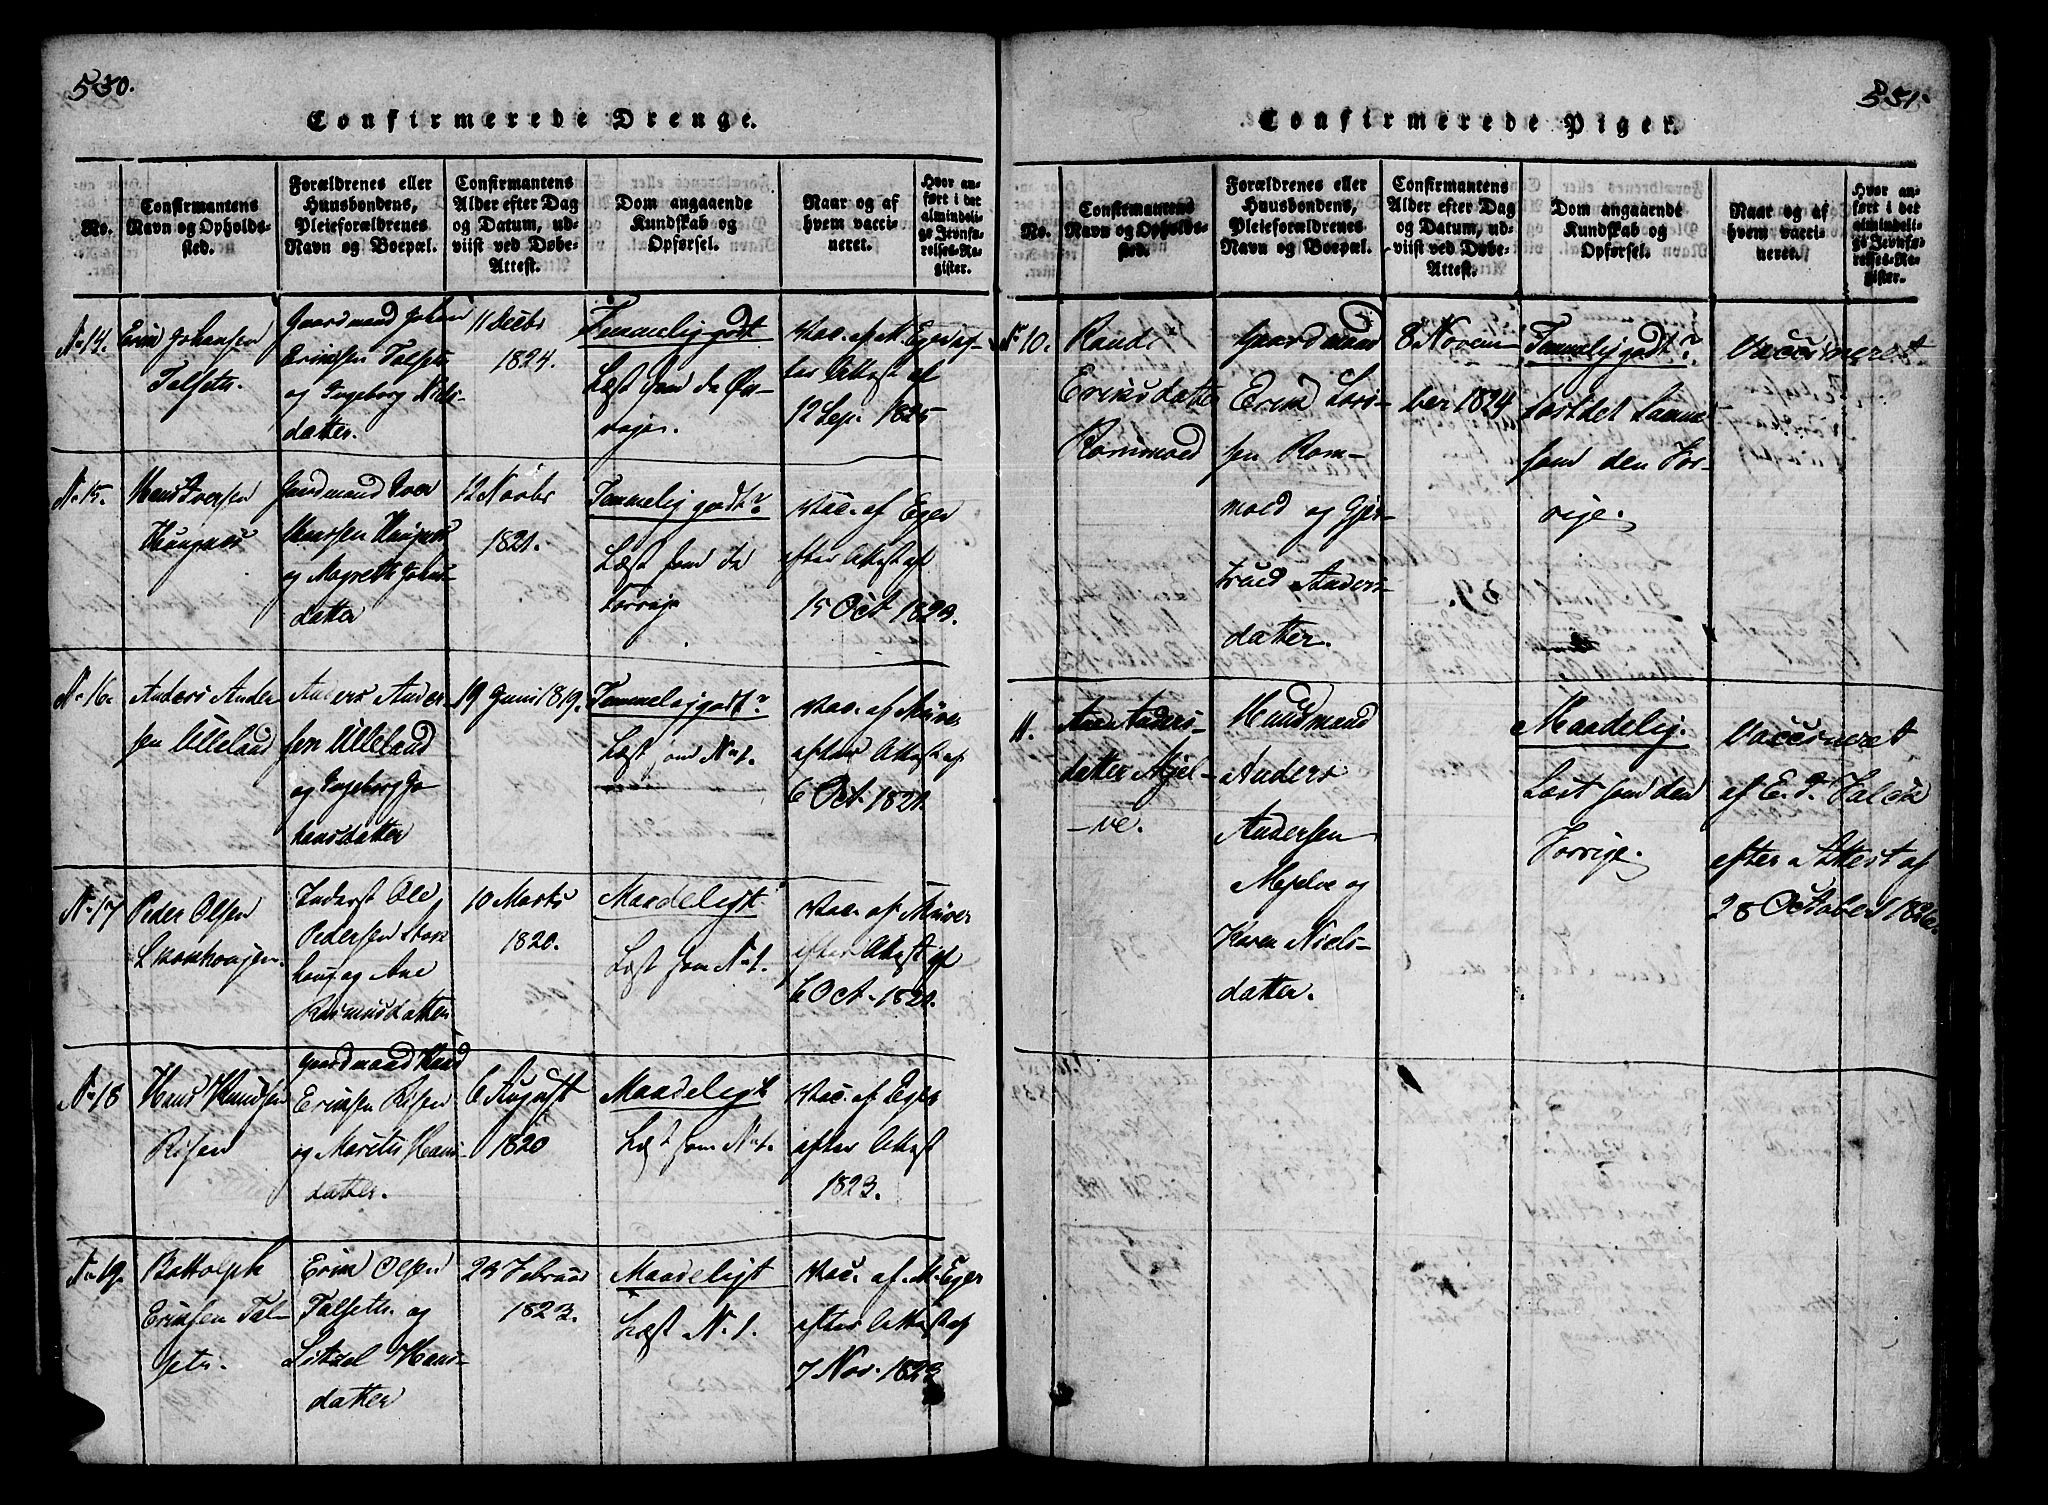 530.
Confirmerede Drenge.
No.
Confirmantens
Navn og Opholds-
sted.
Forældrenes eller
Huusbondens,
Pleieforældrenes
Navn og Boepæl.
Confirmantens
Alder efter Dag
og Datum, ud-
viist ved Døbe-
Attest.
Dom angaaende
Kundskab og
Opførsel.
Naar og af
hvem vacci-
neret.
Hvor an-
ført i det
almindeli-
ge Jevnfø-
relses-Re-
gister.
N. 14.
Johansen
Talseth.
Gaardmand Johan
Talseth
og Ingeborg Niels-
datter.
11 Decbr
1824.
Temmelig godt
Læst som de
Vac. af M. Eger ef-
ter Attest af
12 Sep. 1825
N. 15.
Hans Iversen
Gaardmand Iver
Hanssen
og Magrethe Johns-
datter
12 Novbr
1821.
Temmelig godt?
Læst som de
Forrige
Vac. af Eger
efter Attest af
15 Oct 1823.
N. 16.
Anders Ander
sen Ulleland
Anders Ander-
sen Ulleland
og Ingeborg Jo
hansdatter
19 Juni 1819.
Temmelig godt?
Læst som N. 1.
Vac. af
efter Attest af
6 Oct. 1821.
N. 17
Peder Olsen
Inderst Ole
Pedersen
og Ane
Rasmusdatter
10 Marts
1820.
Maadeligt
Læst som N. 1.
Vac. af
efter Attest af
6 Oct. 1821.
N. 18
Hans Knudsen
Risen
Gaardmand Knud
Risen
og Marethe Hans-
datter.
6 August
1820
Maadeligt
Læst som N. 1.
Vac. af Eger
efter Attest
1823.
N. 19.
Bottolph
Tal-
seth.
Olsen
Talseth og
Litzel Hans-
datter
23 Februar
1823.
Maadeligt
Læst N. 1.
Vac. af M. Eger
efter Attest af
7 Nov. 1823
551.
Confirmerede Piger.
No.
Confirmantens
Navn og Opholds-
sted.
Forældrenes eller
Huusbondens,
Pleieforældrenes
Navn og Boepæl.
Confirmantens
Alder efter Dag
og Datum, ud-
viist ved Døbe-
Attest.
Dom angaaende
Kundskab og
Opførsel.
Naar og af
hvem vacci-
neret.
Hvor an-
ført i det
almindeli-
ge Jevnfø-
relses-Re-
gister.
N. 10.
Randi
Gaardmand
og Gjer-
trued Anders-
datter.
8 Novem
ber 1824
Temmelig godt?
Læst det Samme
som den For-
rige.
Vaccineret
11.
Ane Anders-
datter Mjel-
ve.
Huusmand
Anders
Andersen
Mjelve og
Karen Niels-
datter.
Maadelig.
Læst som den
Forrige.
Vaccineret
af E. F. Falck
efter Attest af
28 October 1826.